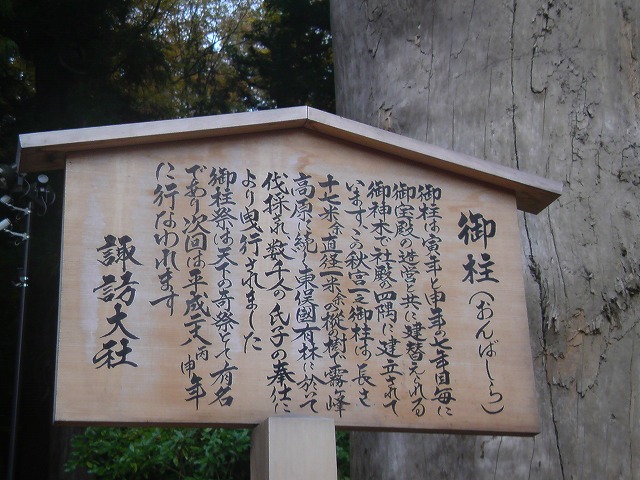 御柱（おんばしら）
御柱は寅年と申年の七年目毎に
御宝殿の造営と共に建替えられる
御神木で社殿の四隅に建立されて
います この秋宮一之御柱は長さ
十七米余直径一米余の樅樹で霧ヶ峰
高原に続く東俣國有林に於いて
伐採され数千人の氏子の奉仕に
より曳行されました
御柱祭は天下の奇祭として有名
であり次回は平成二十八丙申年
に行なわれます
諏訪大社